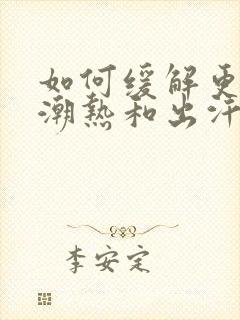 如何缓解更
潮热和出汗
李安定